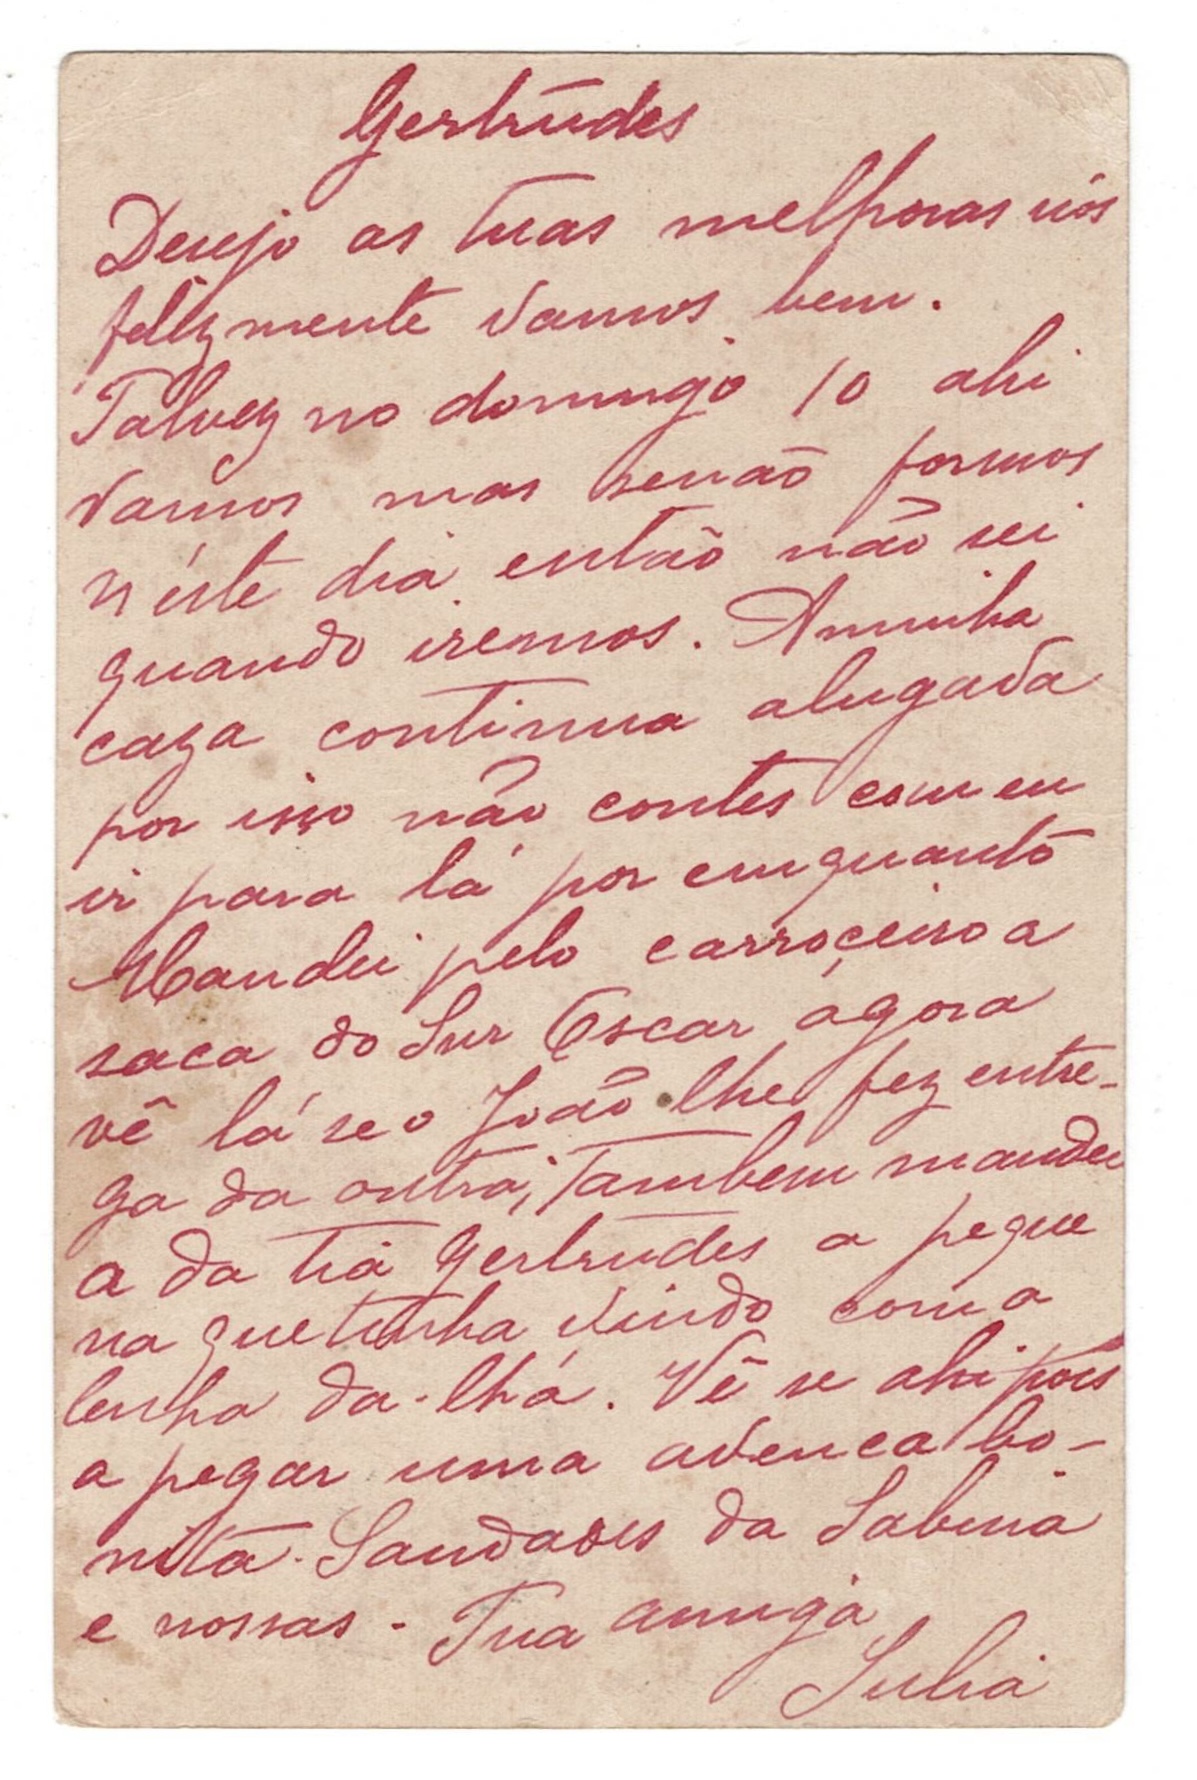 Gertrudes
Desejo as tuas melhoras nós
felizmente vamos bem.
Talvez no domingo 10 ahi
vamos mas senão formos
n'éste dia então não sei
quando iremos. A minha
caza continua alugada
por isço não contes com eu
ir para lá por emquanto
Mandei pelo carroçeiro a
saca do Snr Oscar ágora
vê lá se o João lhe fez entre-
ga da outra, Tambem mandei
a da tia Gertrudes a peque
na que tinha vindo com a
lenha da-lhá. Vê se ahi pois
a pegar uma avenca bo-
nita. Saudades da Sabina
e nossas - Tua amiga
Julia